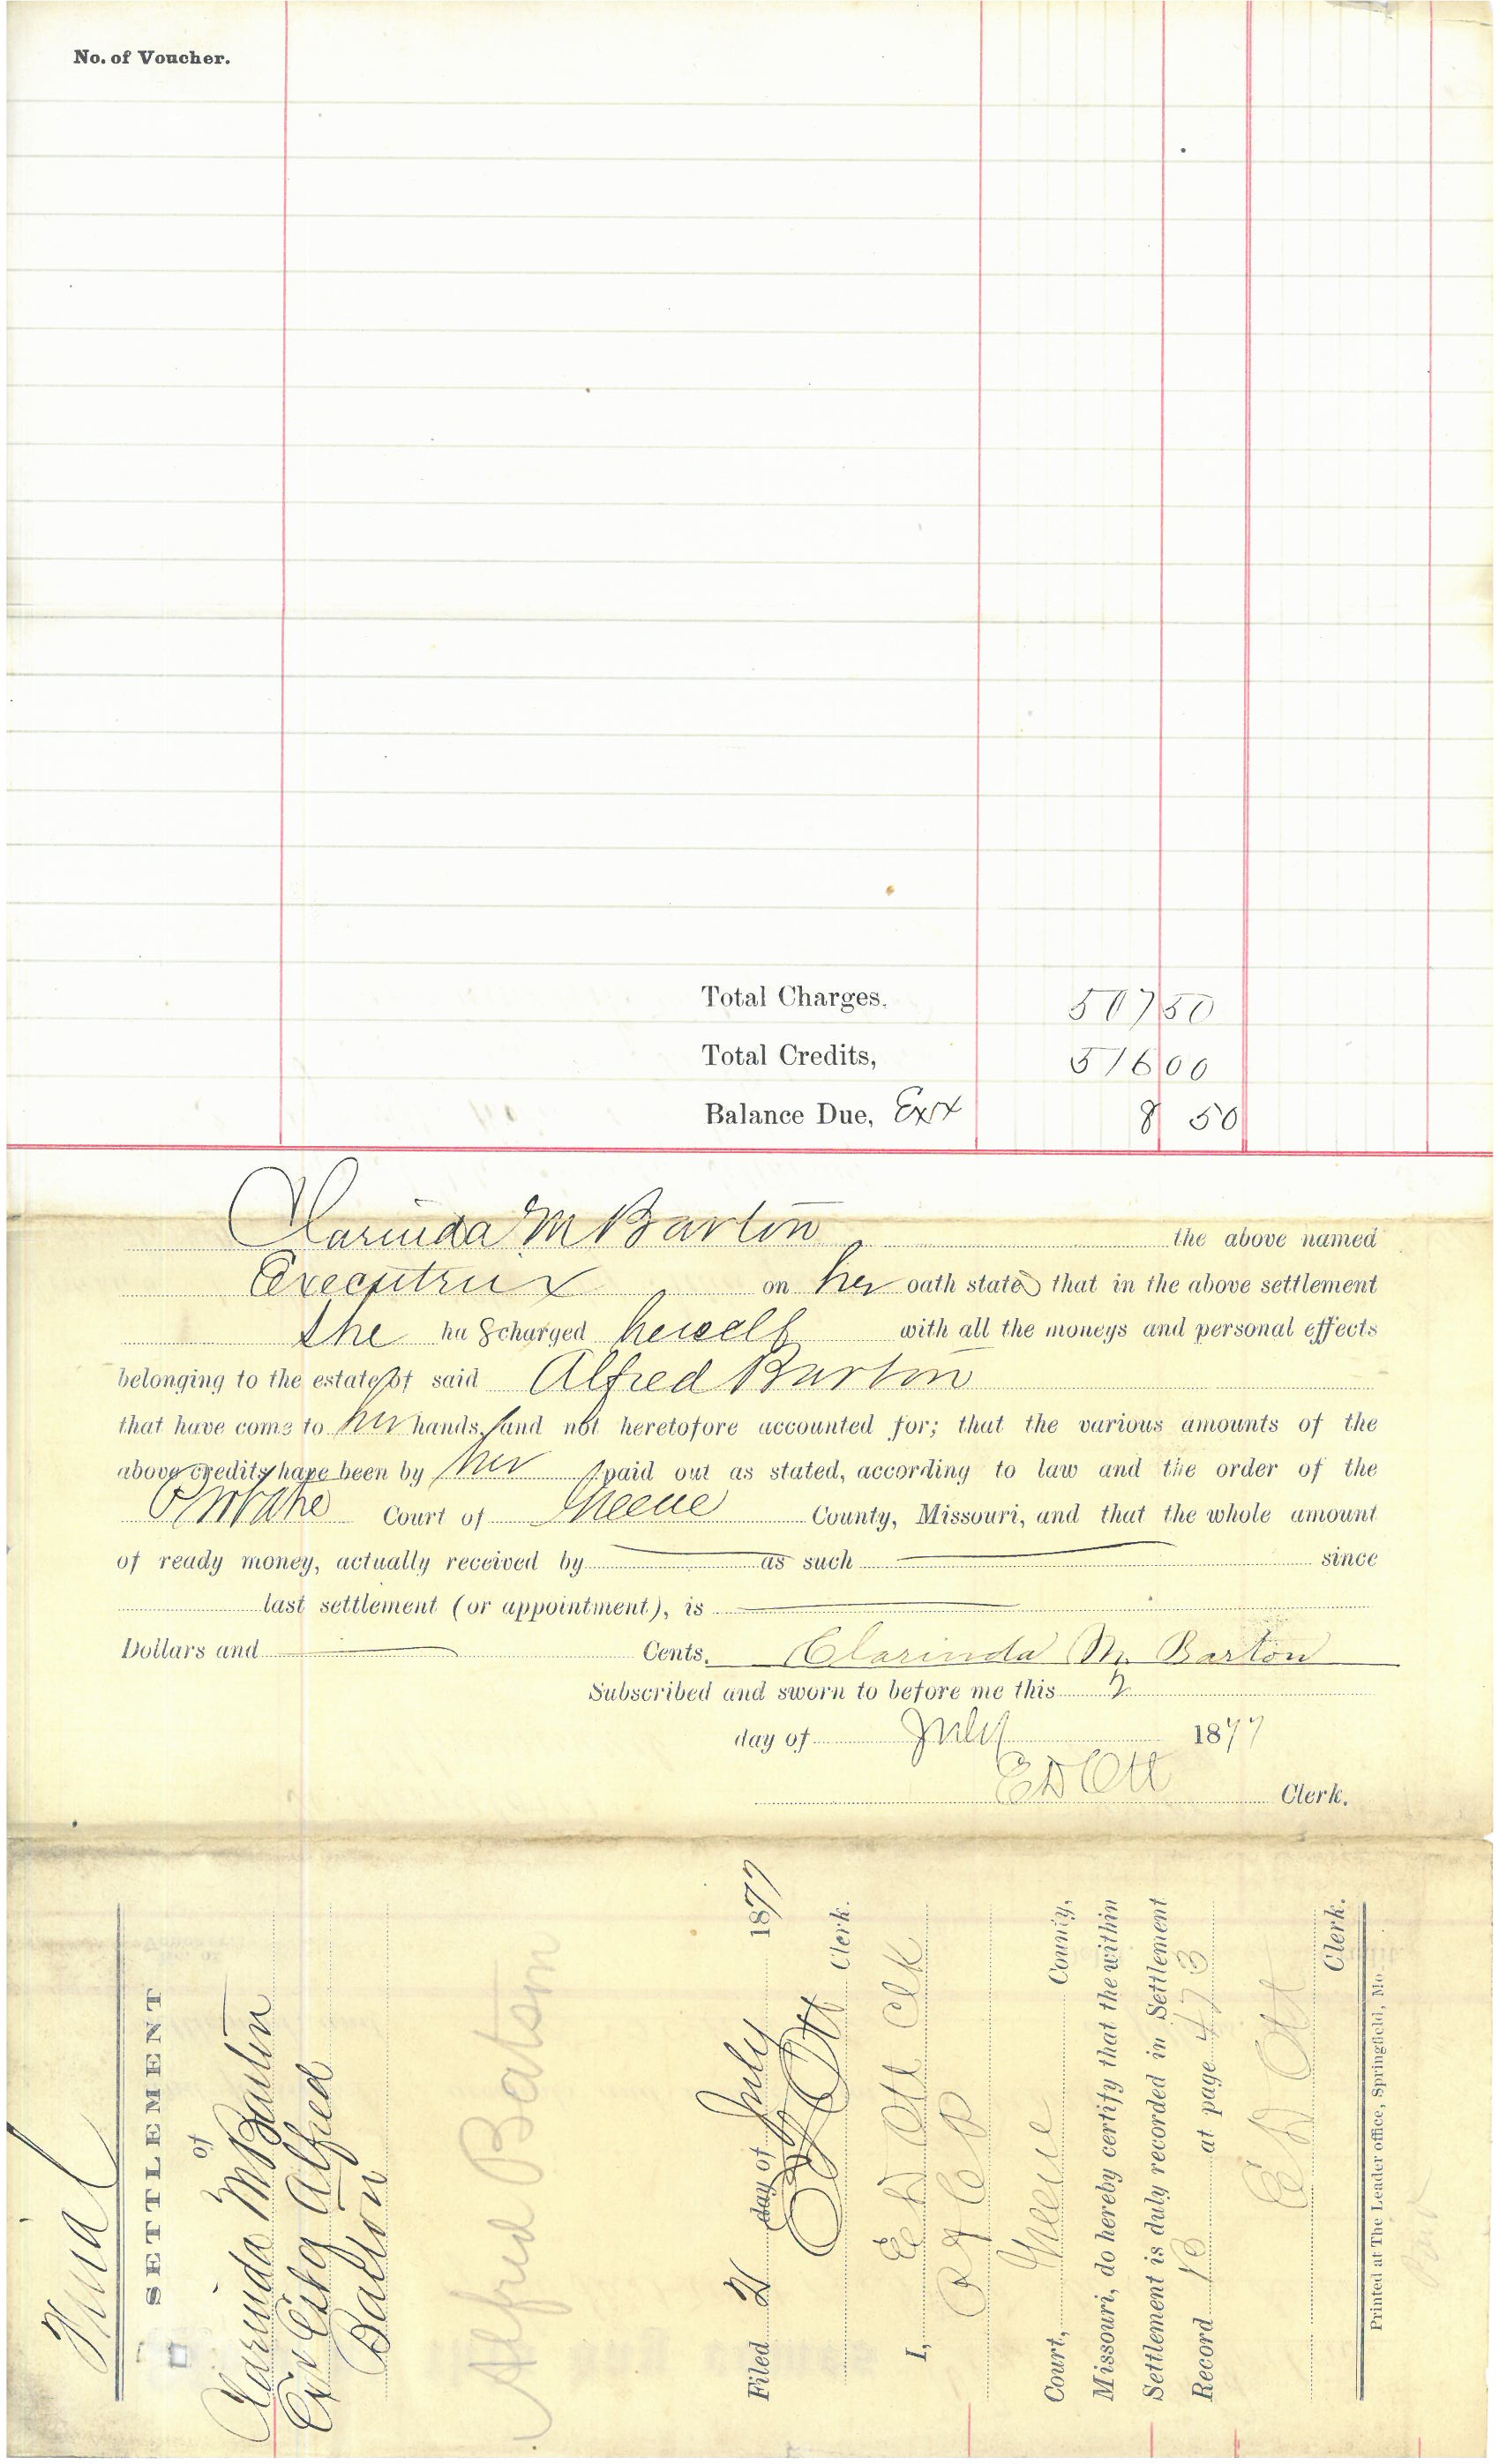 No. of Voucher.
Total Charges. 507 50
Total Credits, 516 00
Balance Due, Exx 8 50
Clarinda M Barton the above named
Executrix on her oath states that in the above settlement
she has charged herself with all the moneys and personal effects
belonging to the estate of said Alfred Barton
that have come to her hands, and not heretofore accounted for; that the various amounts of the
above credits have been by her paid out as stated, according to law and the order of the
Probate Court of Greene County, Missouri, and that the whole amount
of ready money, actually received by as such since
last settlement (or appointment), is
Dollars and Cents. Clarinda M. Barton
Subscribed and sworn to before me this 2
day of July 1877
E D Ott Clerk.
Final
SETTLEMENT
of
Clarinda M Barton
Ex Est of Alfred
Barton
Alfred Batson
Filed 2 day of July 1877
E D Ott Clerk.
I, E D Ott Clk
Court, Greene County,
Missouri, do hereby certify that the within
Settlement is duly recorded in Settlement
Record at page 473
E D Ott
Clerk.
Printed at The Leader office, Springfield, Mo